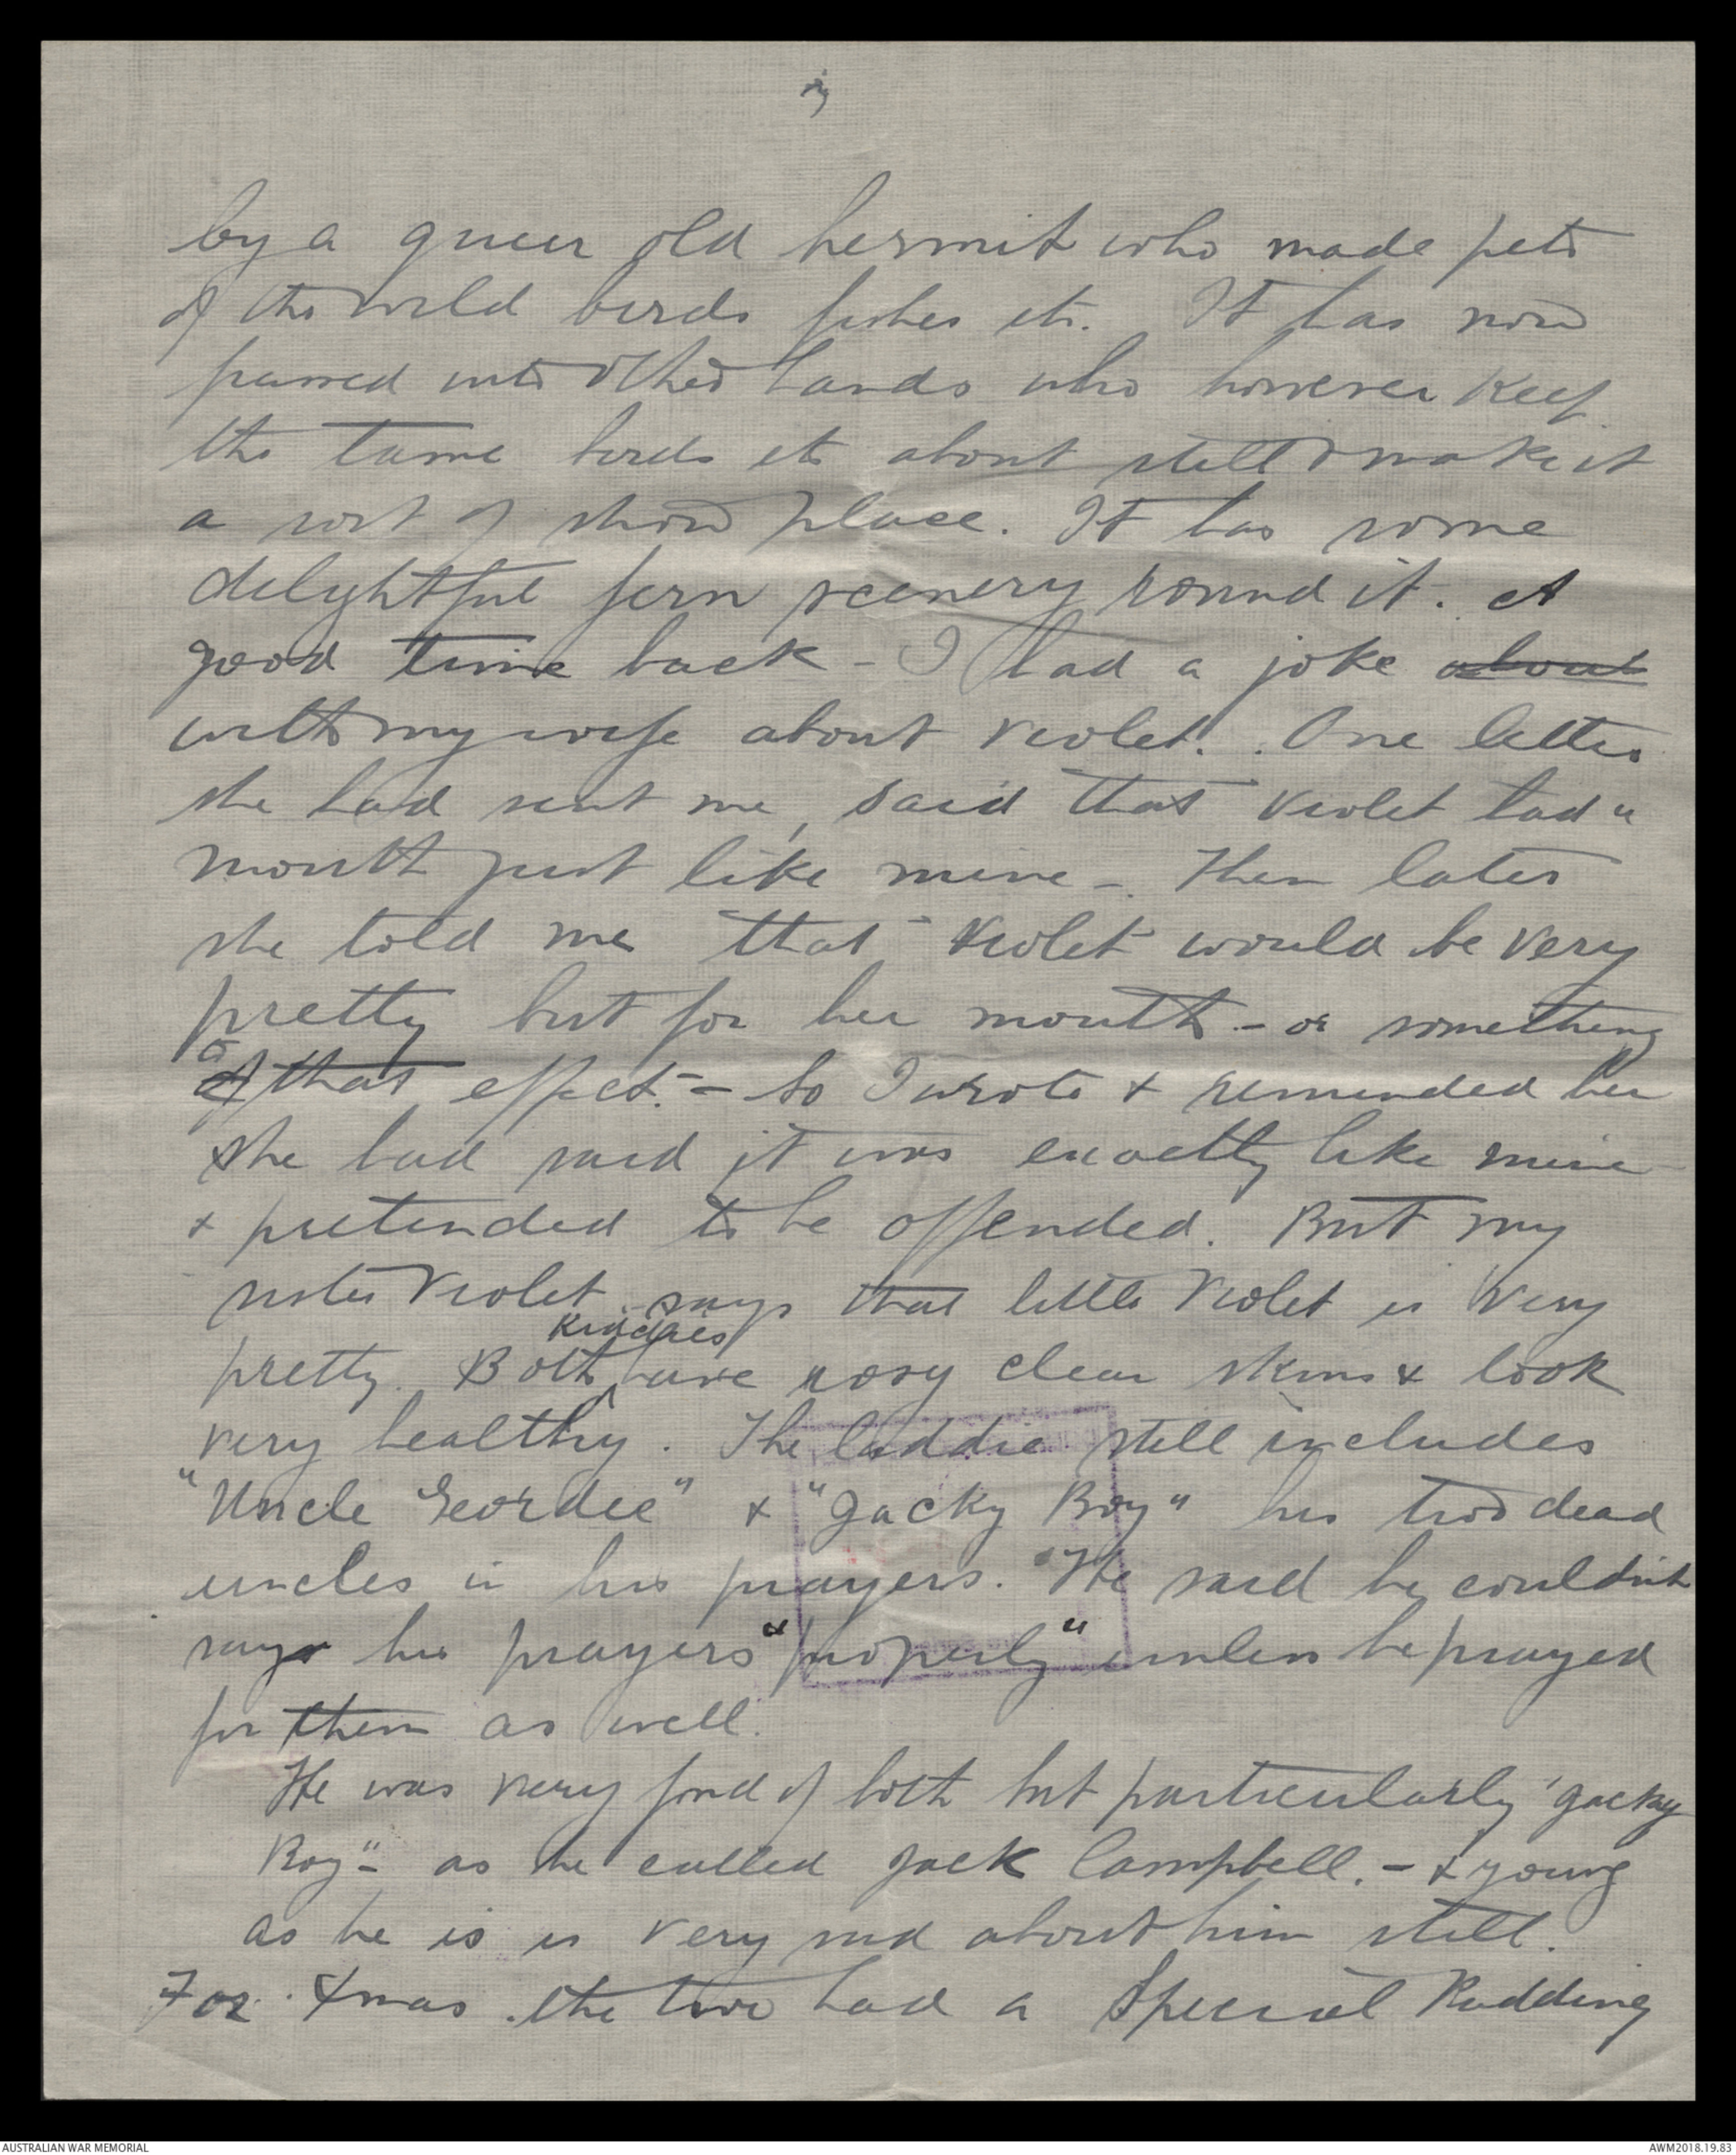 by a queer old hermit who made pets
of the wild birds fishes etc. It has now
passed into other hands who however keep
the tame birds etc about still & make it
a sort of show place. It has some
delightful fern scenery round it. A
good time back - I had a joke about
with my wife about Violet. One letter
she had sent me, said that Violet had a
mouth just like mine - Then later
she told me that Violet would be very
pretty but for her mouth - or something
to
of that effect. - So I wrote & reminded her
she had said it was exactly like mine
& pretended to be offended. But my
sister Violet says that little Violet is very
Kiddies
pretty. Both have rosy clear skins & look
very healthy. The laddie still includes
"Uncle Geordie" & "Jacky Boy" his two dead
uncles in his prayers. He said he couldn't
says his prayers "properly" unless he prayed
for them as well.
He was very fond of both but particularly "Jacky
Boy" - as he called Jack Campbell. - & young
as he is is very sad about him still.
For Xmas the two had a Special Pudding
AUSTRALIAN WAR MEMORIAL
AWM2018.19.83